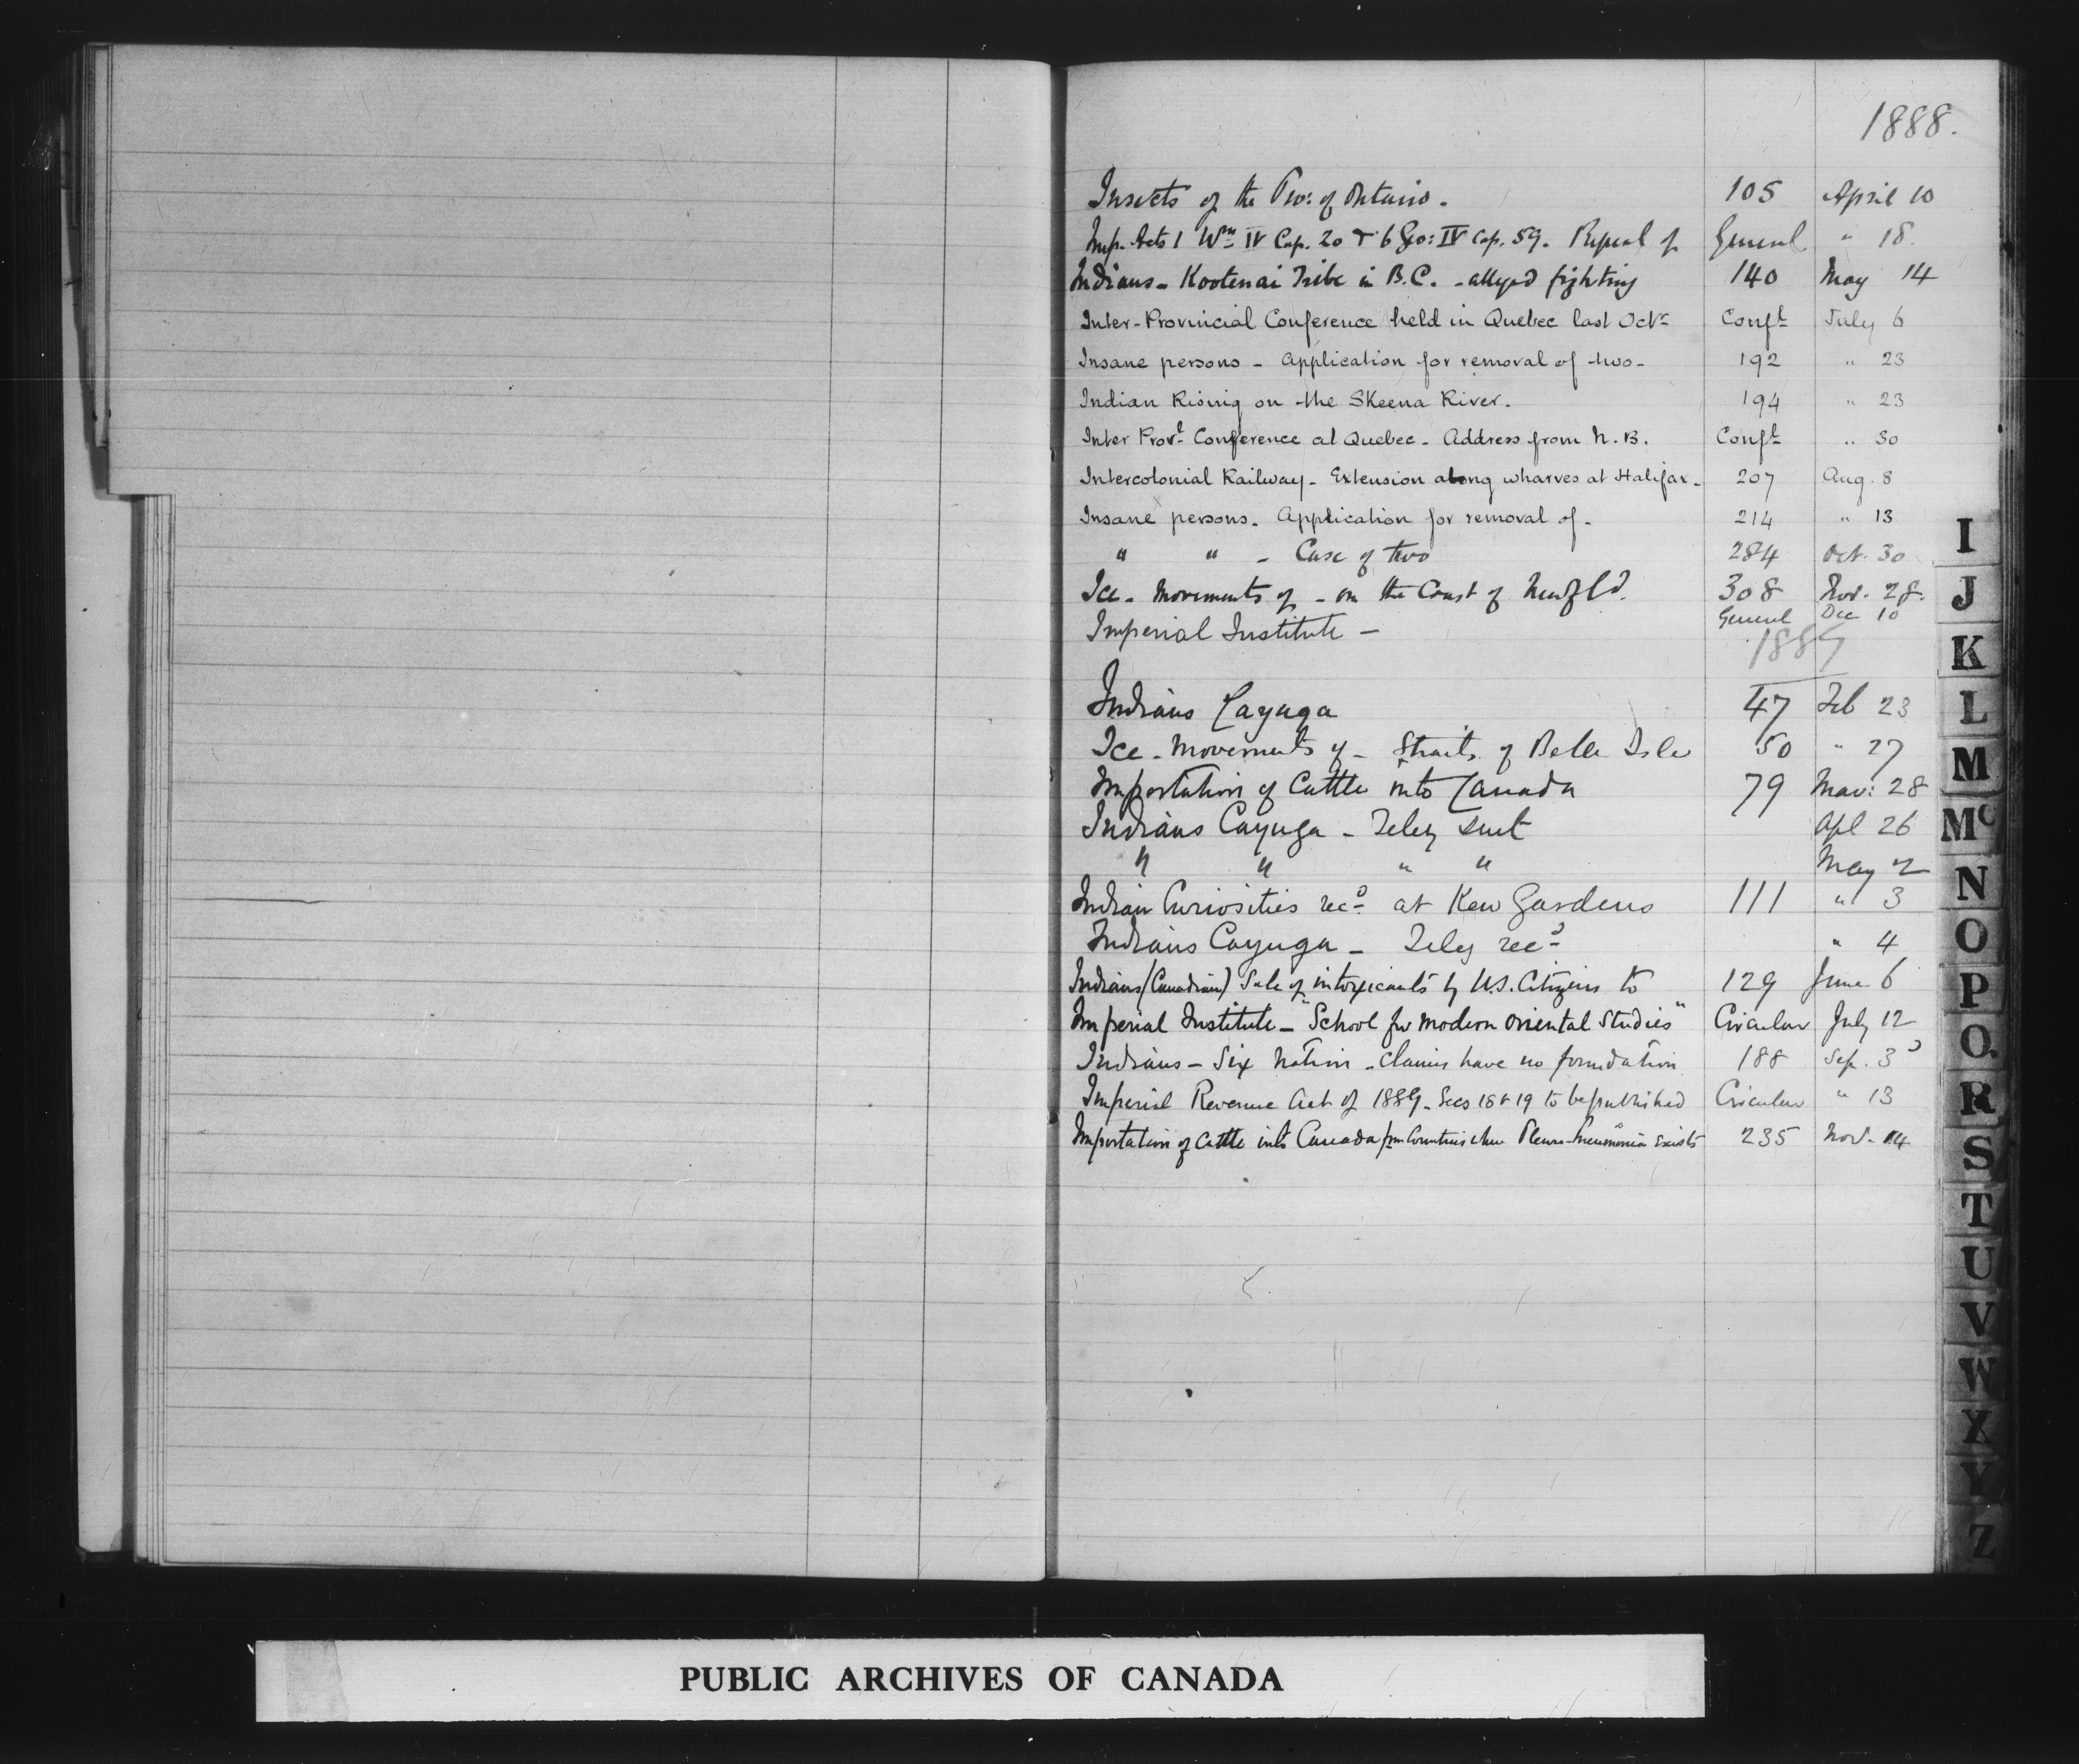 1888.
Insects of the Pro: of Ontario. 105 April 10
Imp. Acts 1 Wm IV Cap. 20 & 6 Geo: IV Cap. 59. Repeal of General " 18.
Indians - Kootenai Tribe in B.C. - alleged fighting 140 May 14
Inter-Provincial Conference held in Quebec last Octr Confl July 6
Insane persons - Application for removal of two - 192 " 23
Indian Rising on the Skeena River. 194 " 23
Inter Provl Conference at Quebec - Address from N.B. Confl " 30
Intercolonial Railway - Extension along wharves at Halifax - 207 Aug. 8
Insane persons. Application for removal of - 214 " 13
" " - Case of two 284 Oct. 30
Ice - Movements of - on the Coast of Newfld. 308 Nov. 28.
Imperial Institute - General Dec 10
1889
Indians Cayuga 47 Feb 23
Ice - Movements of - Straits of Belle Isle 50 " 27
Importation of Cattle into Canada 79 Mar: 28
Indians Cayuga - Teleg sent Apl 26
" " " " May 2
Indian Curiosities recd at Kew Gardens 111 " 3
Indians Cayuga - Teleg recd " 4
Indians (Canadian) Sale of intoxicants by U.S. Citizens to 129 June 6
Imperial Institute - "School for Modern Oriental Studies" Circular July 12
Indians - Six Nation - claims have no foundation 188 Sep. 3
Imperial Revenue Act of 1889 - Secs 18 & 19 to be published Circular " 13
Importation of Cattle into Canada from Countries where Pleuro-Pneumonia exists 235 Nov. 14
I
J
K
L
M
Mc
N
O
P
Q
R
S
T
U
V
W
X
Y
Z
PUBLIC ARCHIVES OF CANADA